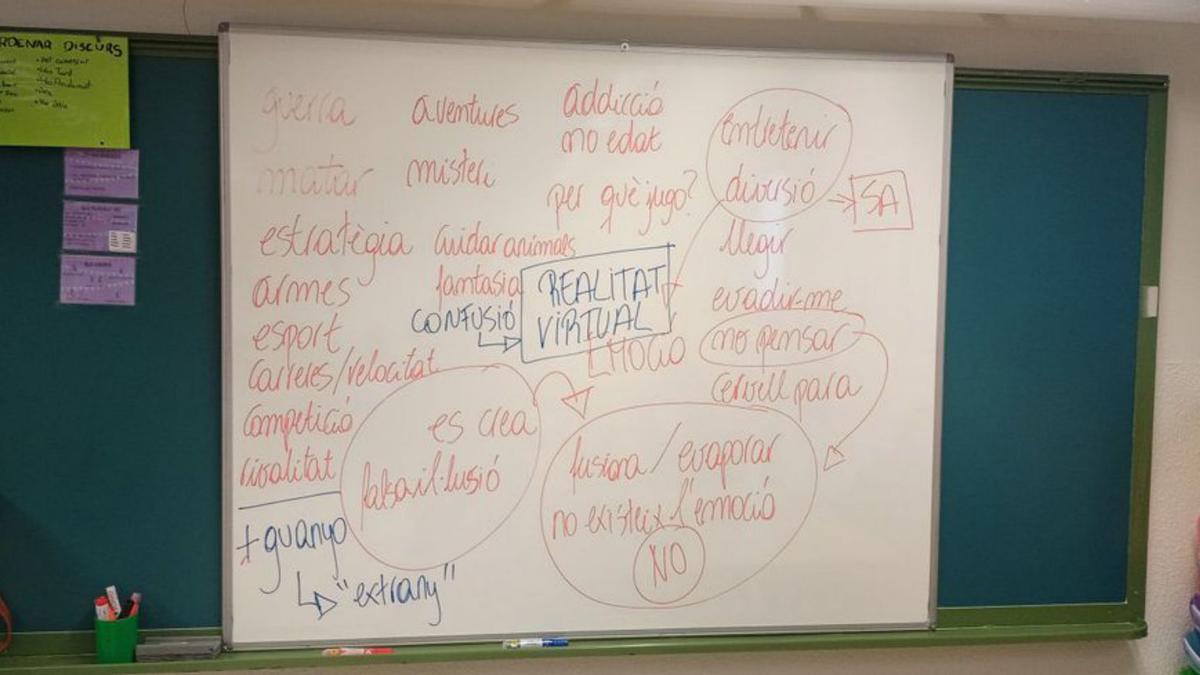 ORDENAR DISCURS
guerra
matar
estratègia
armes
esport
carreres/velocitat
competició
rivalitat
+ guanyo
"extrany"
aventures
misteri
cuidar animales
fantasia
CONFUSIÓ
REALITAT
VIRTUAL
EMOCIÓ
es crea
falsa il·lusió
addicció
no edat
per què jugo?
entretenir
diversió
SA
llegir
evadir-me
no pensar
cervell para
fusiona / evaporar
no existeix l'emoció
NO